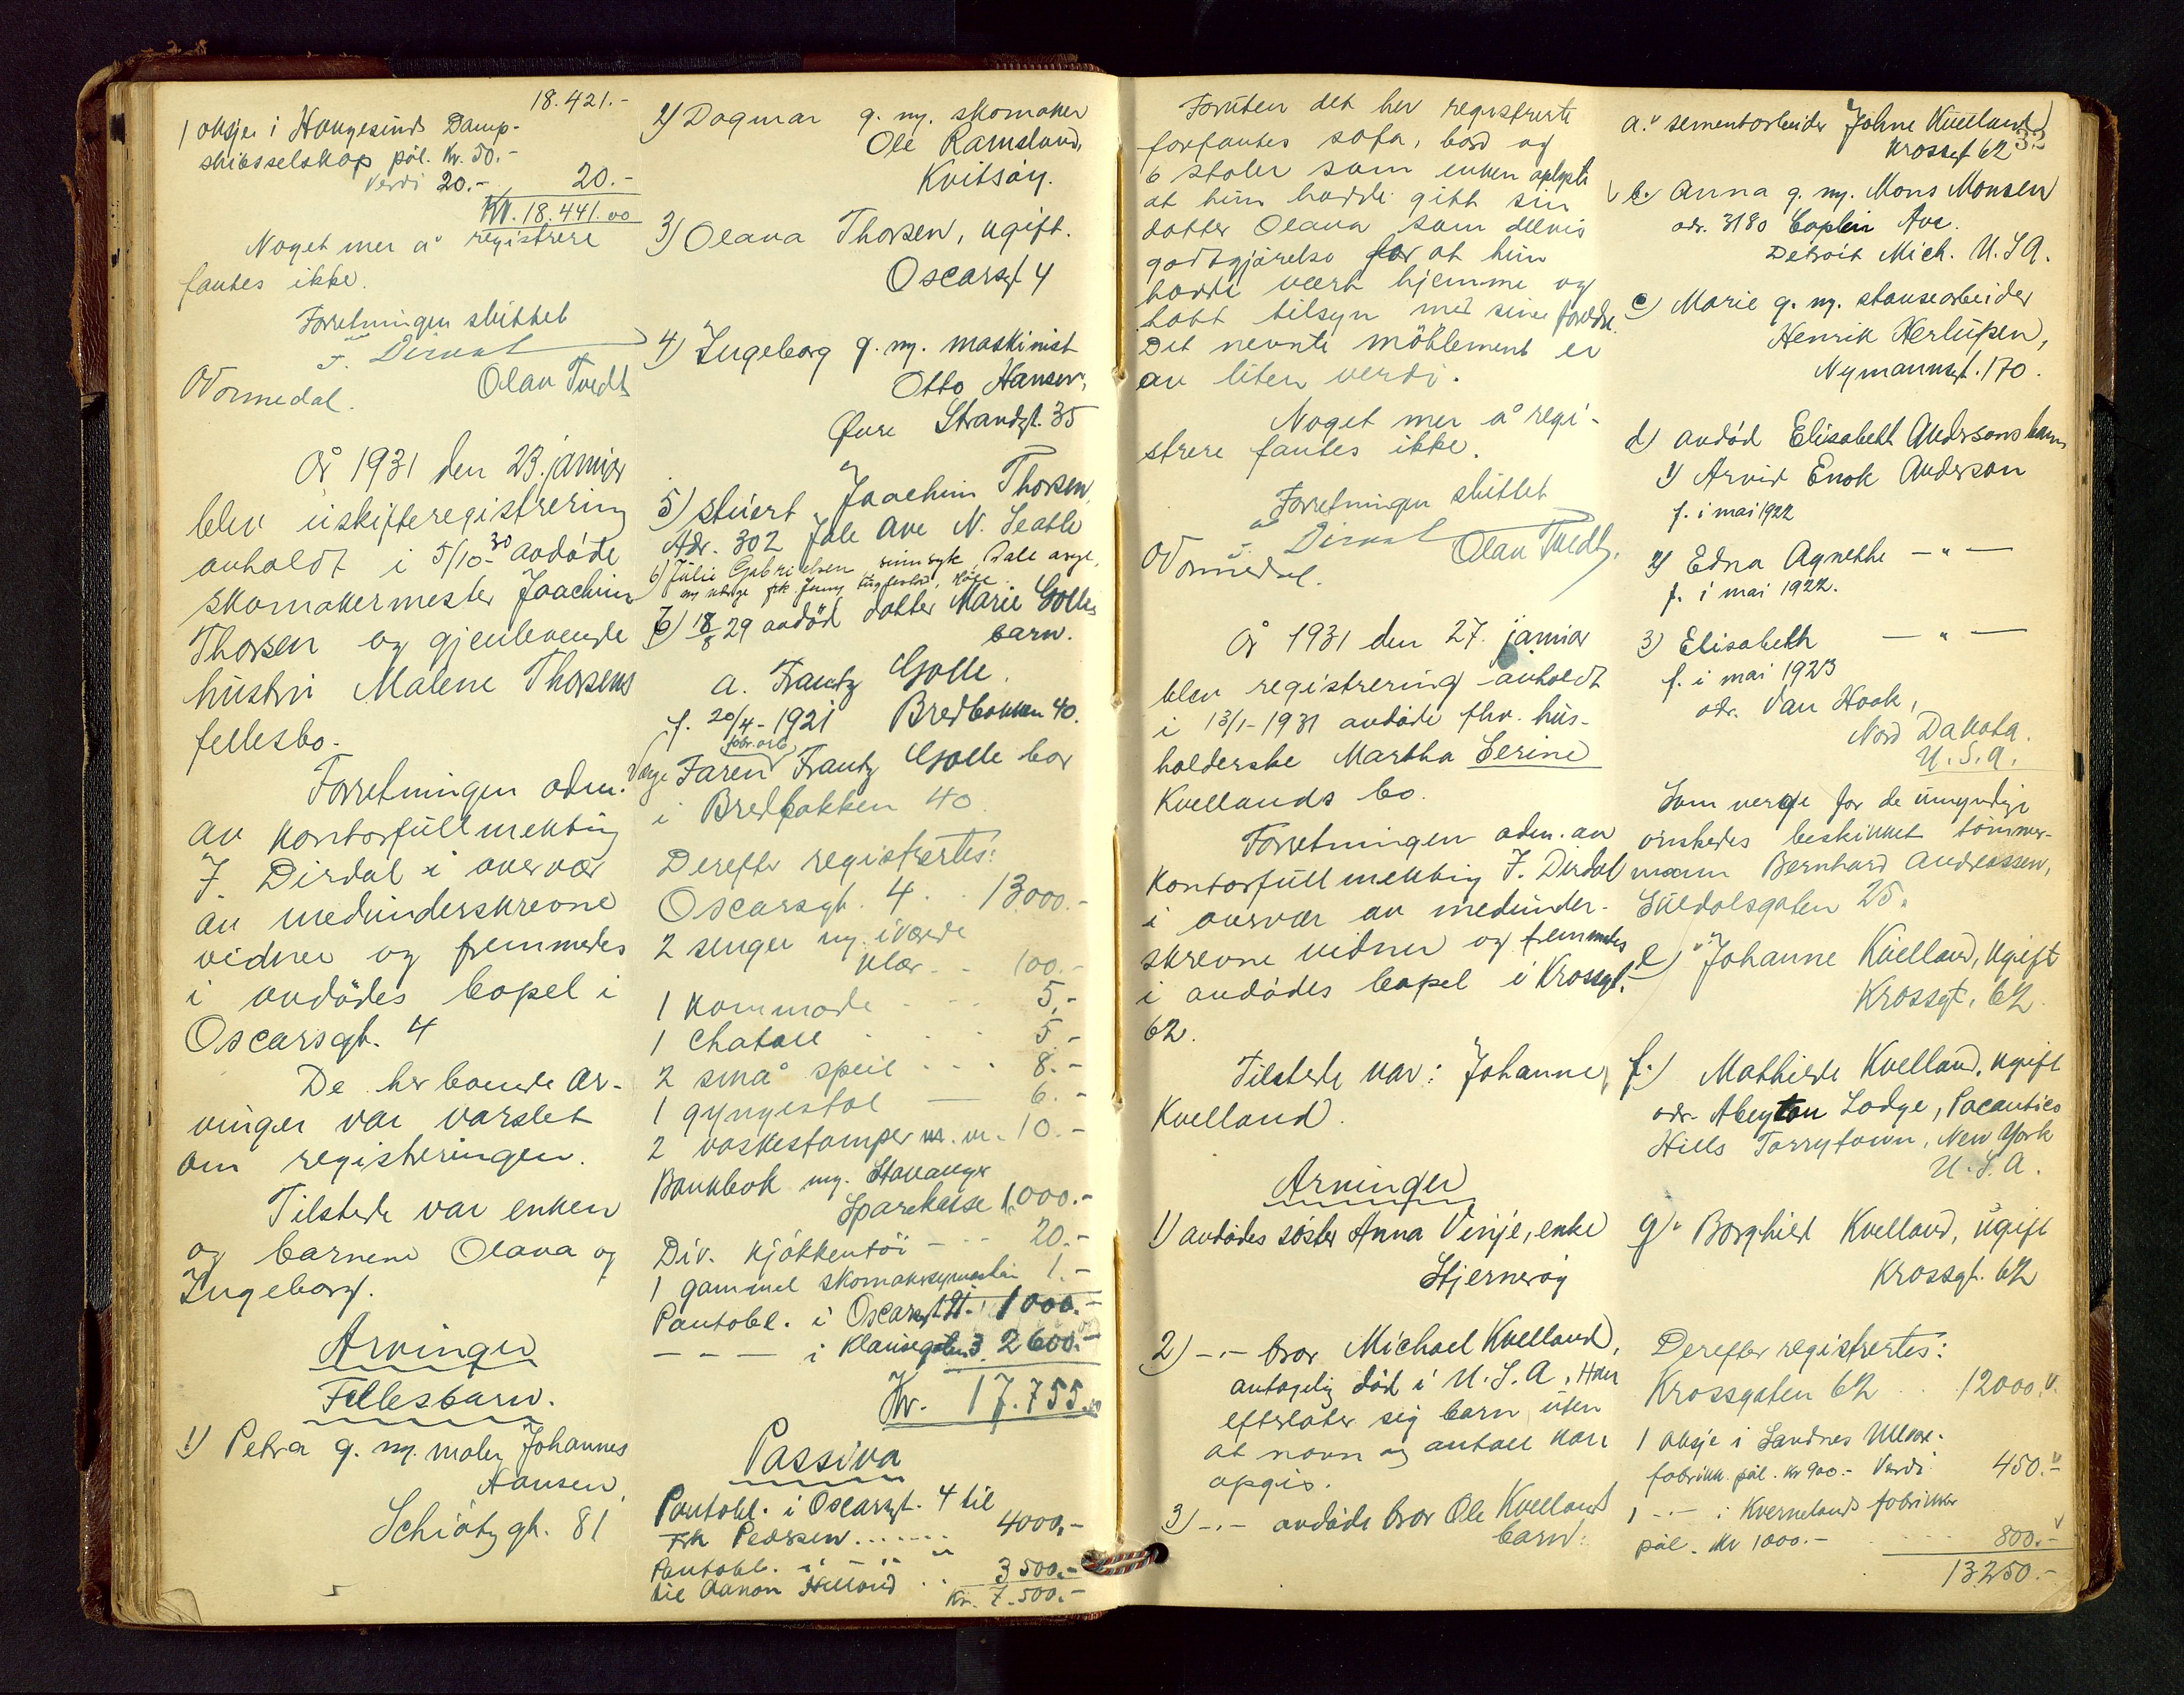 18.421.-
1 aksje i Haugesunds Damp-
skibsselskap pål. kr. 50.-
verdi 20.- 20.-
Kr. 18.441.00
Noget mer å registrere
fantes ikke.
Forretningen sluttet
F. Dirdal
Normedal.
Olav Tvedt
År 1931 den 23. januar
blev uskifteregistrering
avholdt i 5/10-30 avdøde
skomakermester Joachim
Thorsen og gjenlevende
hustru Malene Thorsens
fellesbo.
Forretningen adm.
av kontorfullmektig
F. Dirdal i overvær
av medunderskrevne
vidner og fremmedes
i avdødes bopel i
Oscarsgt. 4
De her boende ar-
vinger var varslet
om registreringen.
Tilstede var enken
og barnene Olava og
Ingeborg.
Arvinger
Fellesbarn.
1) Petra g. m. maler Johannes
Hansen,
Schiøtz gt. 81
2) Dagmar g. m. skomaker
Ole Ramsland,
Kvitsøy.
3) Olava Thorsen, ugift.
Oscarsgt 4
4) Ingeborg g. m. maskinist
Otto Hansen,
Øvre Strandgt. 35
5) stuert Joachim Thorsen,
Adr. 302 Jale Ave N. Seatle
6) Julie Gabrielsen sinnsyk, Dale asyl,
7) 18/8 29 avdød datter Marie Golles
barn.
a. Frantz Golle.
f. 20/4-1921 Bredbakken 40.
fabr.arb
Verge Faren Frantz Golle bor
i Bredbakken 40.
Derefter registrertes:
Oscarsgt. 4. 13000.-
2 senger m. iværende
klær - - 100.-
1 kommode - - 5.-
1 chatoll 5.-
2 små speil . . . 8.-
1 gyngestol — 6.-
2 vaskestamper m. m. 10.-
Bankbok m. Stavanger
Sparekasse 1000.-
Div. kjøkkentøi - - 20.-
1 gammel skomakersymaskin 1.-
Pantobl. i Oscarsgt 21. 1000.-
- - — i Klausegaten 3 2600.-
Kr. 17.755.00
Passiva
Pantobl. i Oscarsgt. 4 til
Frk Pedersen ...... 4000.-
Pantobl. i - " - "
til Haakon Helland . . 3500.-
Kr. 7.500.-
Foruten det her registrerte
forfantes sofa, bord og
6 stoler som enken oplyste
at hun hadde gitt sin
datter Olava som delvis
godtgjørelse for at hun
hadde vært hjemme og
hatt tilsyn med sine foreldre.
Det nevnte møblement er
av liten verdi.
Noget mer å regi-
strere fantes ikke.
Forretningen sluttet
F. Dirdal
Normedal.
Olav Tvedt.
År 1931 den 27. januar
blev registrering avholdt
i 13/1-1931 avdøde fhv. hus-
holderske Martha Serine
Kvellands bo.
Forretningen adm. av
kontorfullmektig F. Dirdal
i overvær av medunder-
skrevne vidner og fremmedes
i avdødes bopel i Krossgt.
62.
Tilstede var: Johanne
Kvelland.
Arvinger
1) avdødes søster Anna Vinje, enke
Stjernerøy
2) - - - bror Michael Kvelland,
antagelig død i U.S.A. Han
efterlater sig barn uten
at navn og antall kan
opgis.
3) - - - avdøde bror Ole Kvellands
barn:
32
a. sementarbeider Johne Kvelland
Krossgt 62
b. Anna g. m. Mons Monsen
adr. 3180 Coplin Ave.
Detroit Mich. U.S.A.
c) Marie g. m. stansearbeider
Henrik Herlufsen,
Nymannsgt. 170.
d) avdød Elisabeth Andersons barn
1) Arvid Enok Anderson
f. i mai 1922
2) Edna Agnethe — " —
f. i mai 1922.
3) Elisabeth — " —
f. i mai 1923
adr. Van Hook,
Nord Dakota.
U.S.A.
Som verge for de umyndige
ønskedes beskikket tømmer-
mann Bernhard Andreassen,
Suldalsgaten 25.
e) Johanne Kvelland, ugift
Krossgt. 62.
f.) Mathilde Kvelland, ugift
adr. Abeyton Lodge, Pocantico
Hills Tarrytown, New York
U.S.A.
g. Borghild Kvelland, ugift
Krossgt. 62
Derefter registrertes:
Krossgaten 62 . . 12000.
1 aksje i Sandnes Ullvare-
fabrikk. pål. kr 900.- Verdi 450.-
1 - - - i Kvernelands fabrikker
pål. kr 1000.- 800.-
13250.-